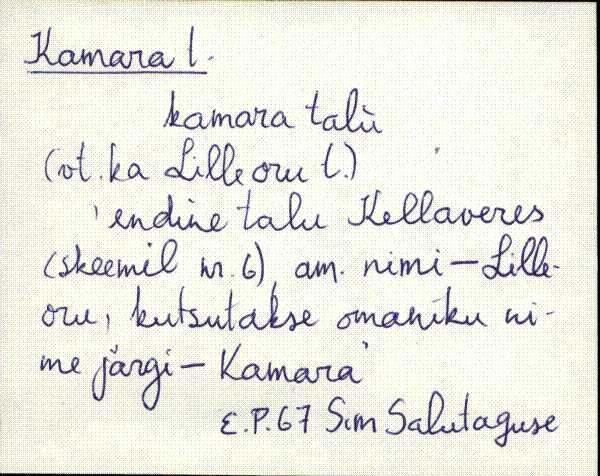 Kamara t.
kamara talù
(vt. ka Lilleoru t.)
'endine talu Kellaveres
(skeemil nr. 6), am. nimi – Lille-
oru, kutsutakse omaniku ni-
me järgi – Kamara'
E.P. 67 Sim Salutaguse